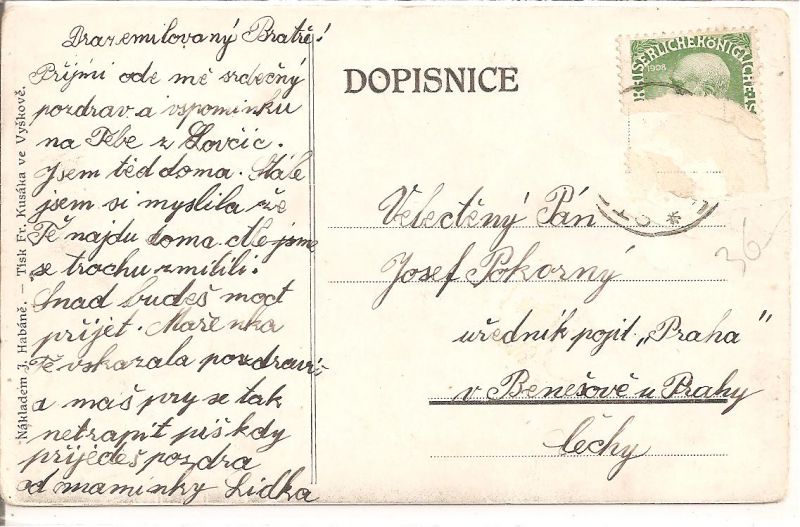 Drazemilovaný Bratře!
Přijmi ode mě srdečný
pozdrav a vspomínku
na Tebe z Lovčic.
Jsem těd doma. Stále
jsem si myslila že
Tě najdu doma. Ale jsme
se trochu zmílili.
Snad budeš moct
přijet. Mařenka
Tě vskazala pozdravit
a maš pry se tak
netrapit piš kdy
přijedeš pozdra
od maminky Lidka
Nákladem J. Habáně. — Tisk Fr. Kusáka ve Vyškově.
DOPISNICE
1908
Velectěný Pán
Josef Pokorný
uředník pojit „Praha"
v Benešově u Prahy
Čechy
36